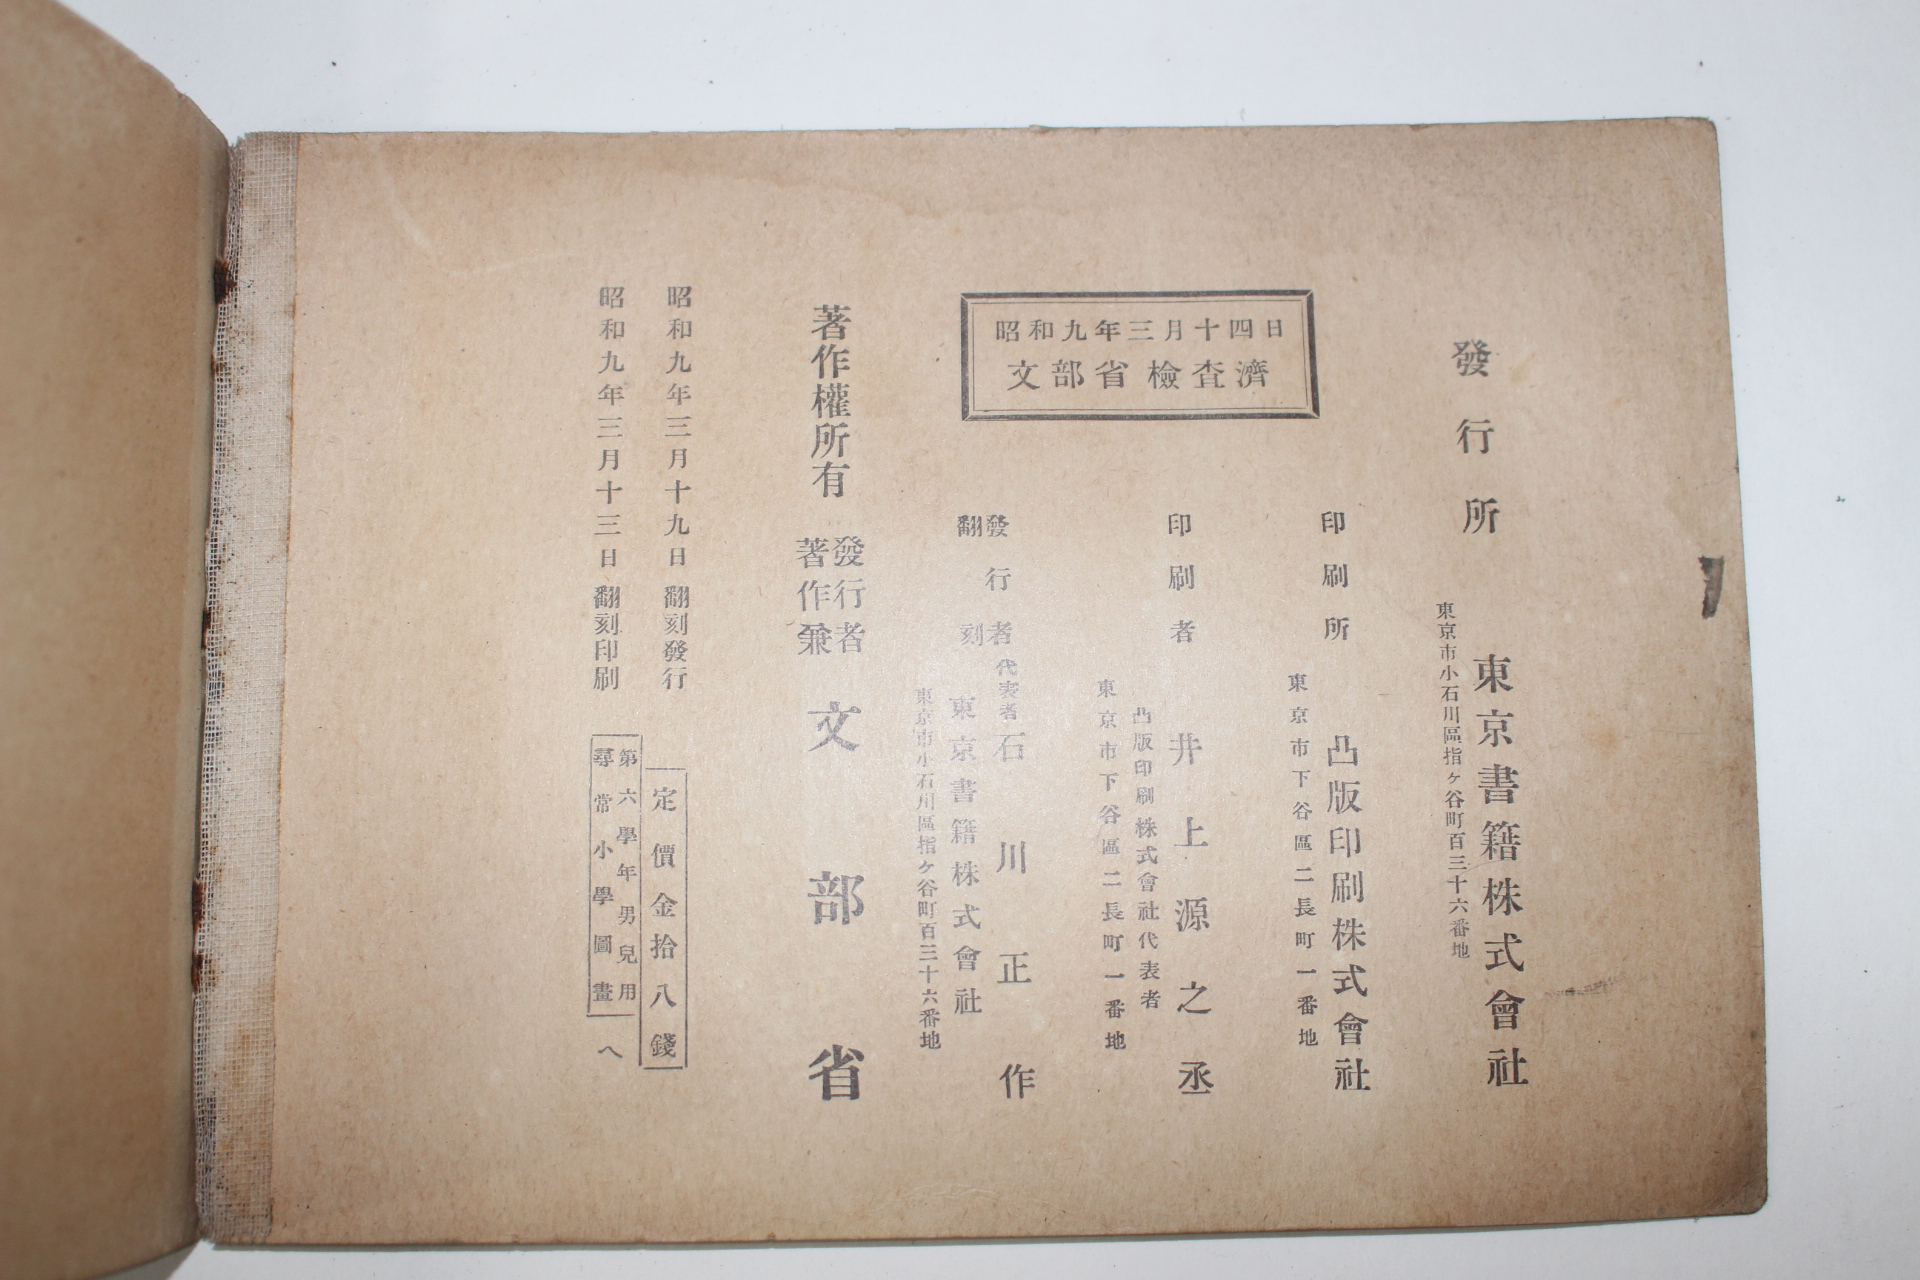 昭和九年三月十三日翻刻印刷
昭和九年三月十九日翻刻發行
尋常小學圖畫
第六學年男兒用
ヘ
定價金拾八錢
著作權所有
著作兼
發行者
文部省
昭和九年三月十四日
文部省檢査濟
翻刻
發行者
東京市小石川區指ヶ谷町百三十六番地
東京書籍株式會社
代表者 石川正作
印刷者
東京市下谷區二長町一番地
凸版印刷株式會社代表者
井上源之丞
印刷所
東京市下谷區二長町一番地
凸版印刷株式會社
發行所
東京市小石川區指ヶ谷町百三十六番地
東京書籍株式會社